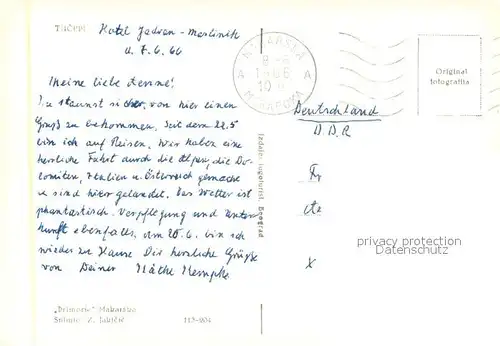 TUČEPI
Hotel Jadran - Mestinik
d. 7.6.66
Meine liebe Aenne!
Du staunst sicher, von hier einen
Gruß zu bekommen. Seit dem 22.5
bin ich auf Reisen. Wir haben eine
herrliche Fahrt durch die Alpen, die Do-
lomiten, Italien u Österreich gemacht
u sind hier gelandet. Das Wetter ist
phantastisch. Verpflegung und Unter-
kunft ebenfalls. Am 20.6. bin ich
wieder zu Hause. Dir herrliche Grüße
von Deiner Käthe Kempke
„Drimario" Makarska
Snimio: Z. Jakčić
112-904
Izdaje: Jugoturist, Beograd
MAKARSKA
8-9
A 1966 A
10
МАКАРСКА
Original
fotografija
Deutschland
D.D.R
Fr
privacy protection
Datenschutz
x